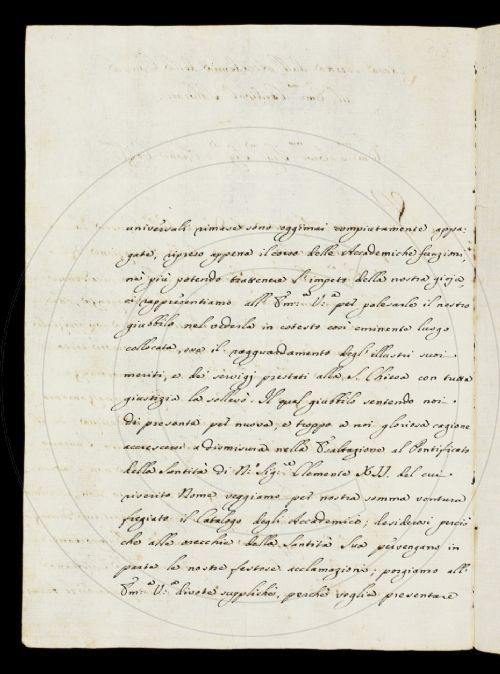 universali rimase sono oggimai compiutamente appa-
gate, ripreso appena il corso delle Accademiche funzioni,
nà più potendo trattenere l'impeto della nostra gioja
ci rappresentiamo all' Em:ª V:ª per palesarle il nostro
giubbilo nel vederla in cotesto così eminente luogo
collocata, ove il ragguardamento degl' illustri suoi
meriti, e de' servigj prestati alla S. Chiesa con tutta
giustizia la sollevò. Il qual giubbilo sentendo noi
di presente per nuova, e troppo a noi gloriosa cagione
accrescersi a dismisura nella Esaltazione al Pontificato
della Santità di N:º Sig:re Clemente XII. del cui
riverito Nome veggiamo per nostra somma ventura
fregiato il Catalogo degli Accademici; desiderosi perciò
che alle orecchie della Santità Sua pervengano in
parte le nostre festose acclamazioni; porgiamo all'
Em:ª V:ª divote suppliche, perchè voglia presentare